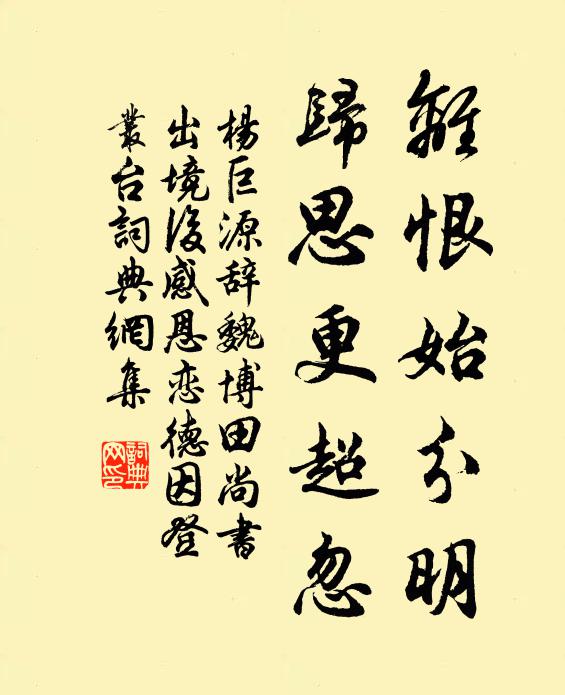 離恨始分明
歸思更超忽
楊巨源辞魏博田尚書
出境後感恩恋德因登
叢台詞典網集
詞典网印